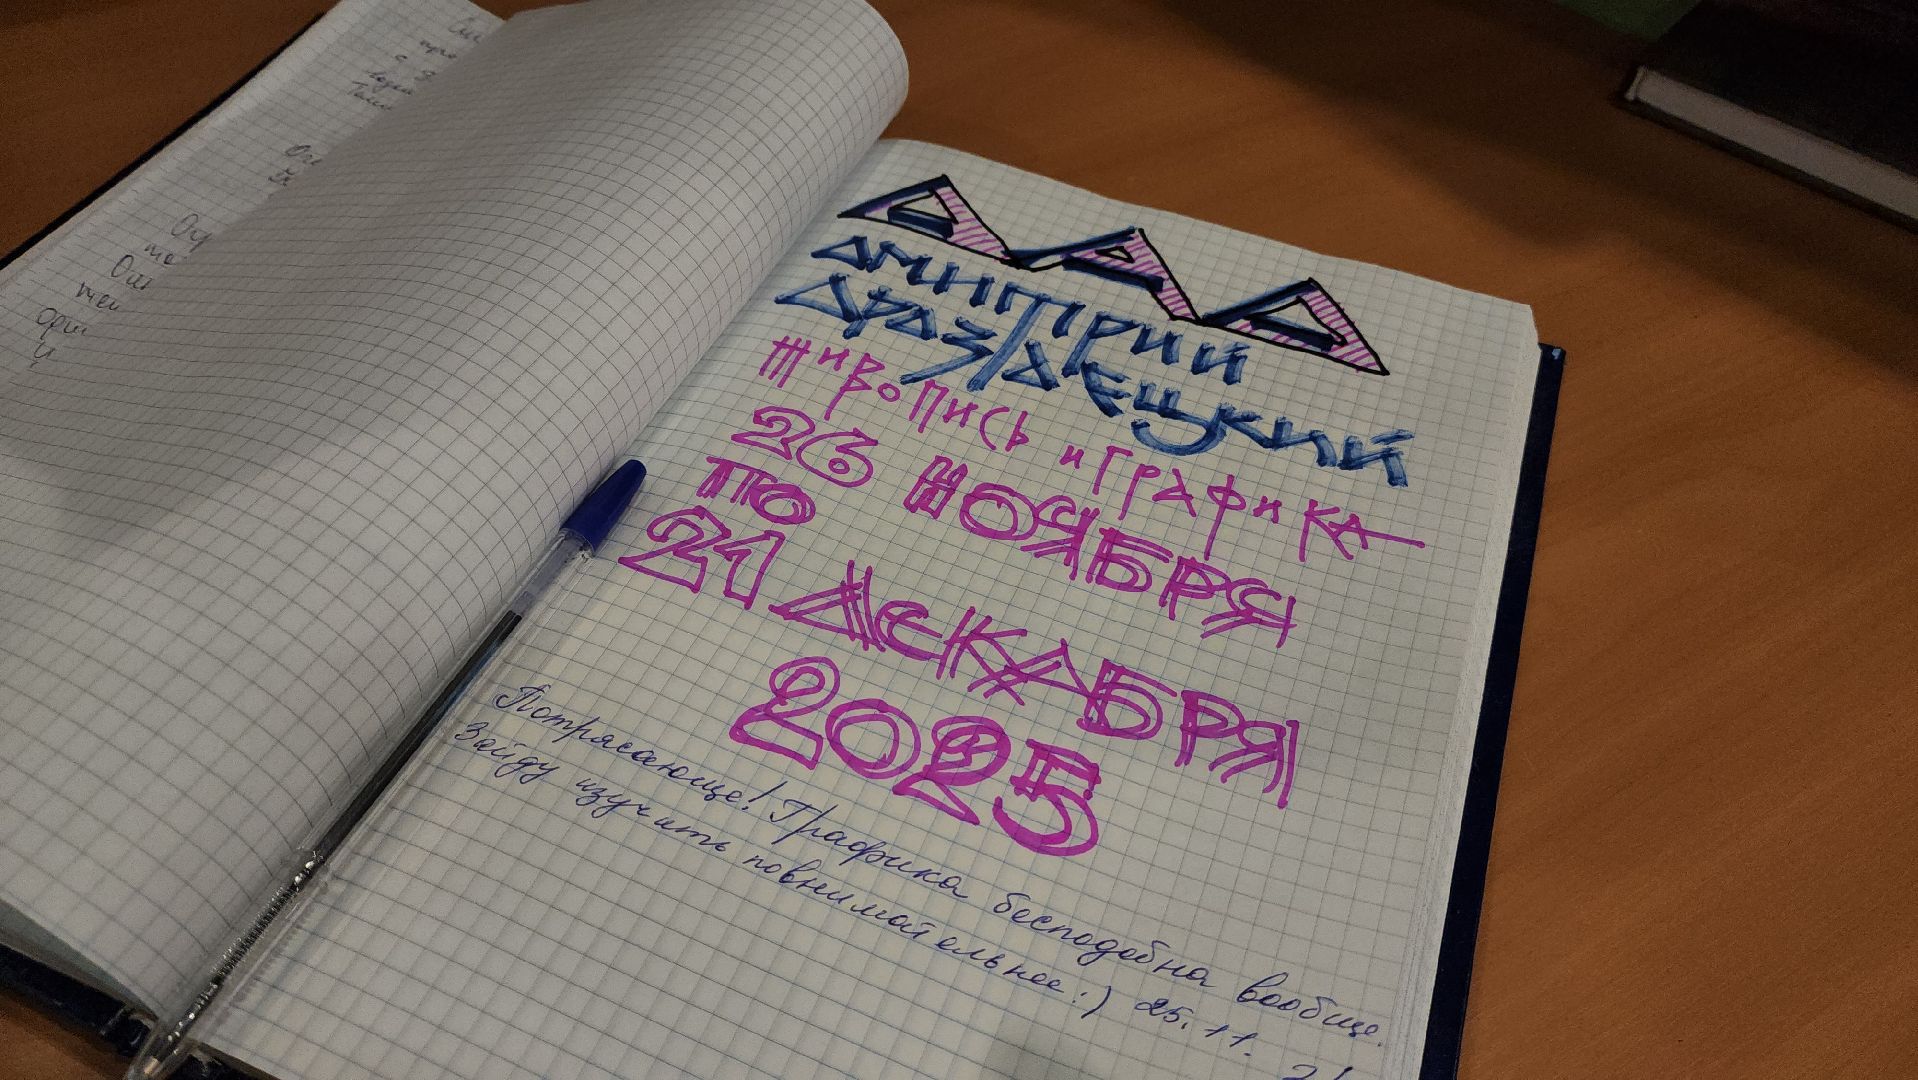 ДДД
ДМИТРИЙ
ДРОЗДЕЦКИЙ
ЖИВОПИСЬ и ГРАФИКА
26 НОЯБРЯ
ПО
21 ДЕКАБРЯ
2025
Потрясающе! Графика бесподобна вообще.
Зайду изучить повнимательнее :) 25.11.